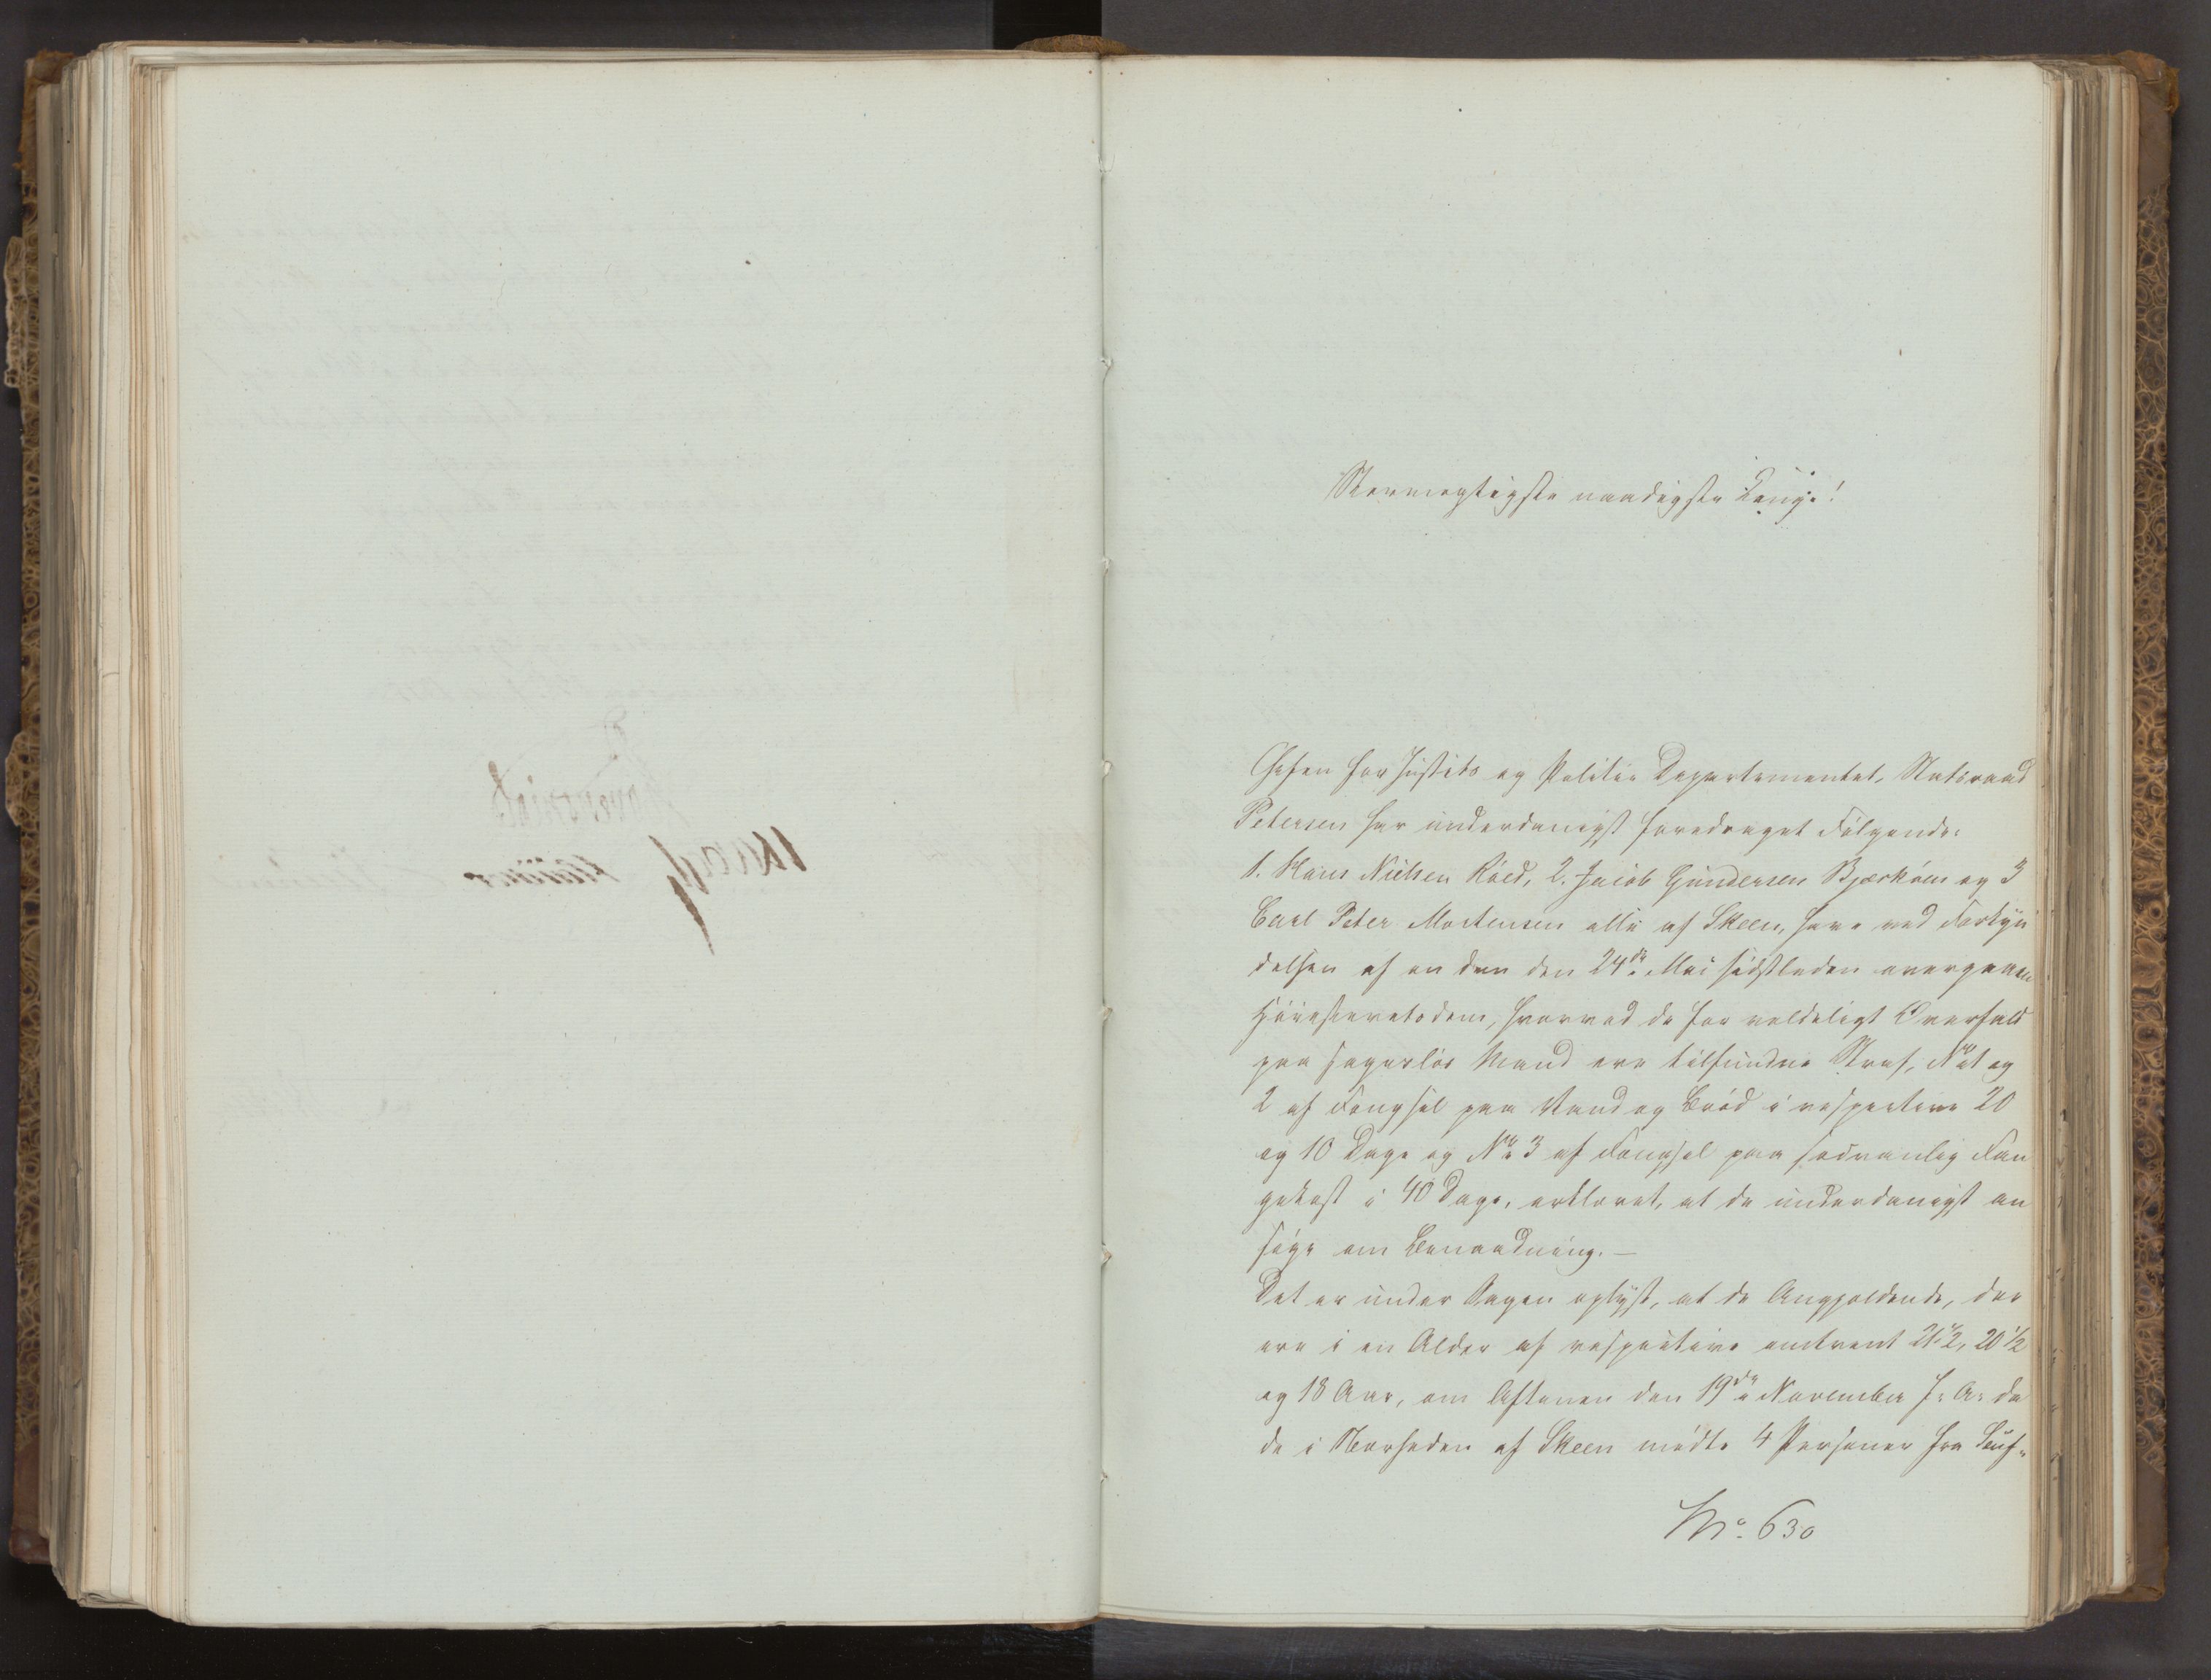 Stormægtigste naadigste Konge!
Chefen for Justits og Politie Departementet, Statsraad
Petersen har underdanigst foredraget Følgende:
1. Hans Nielsen Röed, 2. Jacob Gundersen og 3
Carl Peter Mortensen alle af Skeen, have ved Forkyn
delsen af en den den 24de Mai sidstleden overgaaen
Höiesteretsdom, hvorved de for voldeligt Overfald
paa sageslös Mand ere tilfundne Straf, No 1 og
2 af Fængsel paa Vand og Bröd i respective 20
og 10 Dage og No 3 af Fængsel paa sædvanlig Fan
gekost i 40 Dage, erklæret, at de underdanigst an
söge om Benaadning. —
Det er under Sagen oplyst, at de Angjældende, der
ere i en Alder af respective omtrent 21 1/2, 20 1/2
og 18 Aar, om Aftenen den 19de November f: A: da
de i Nærheden af Skeen mödte 4 Personer fra
No. 630